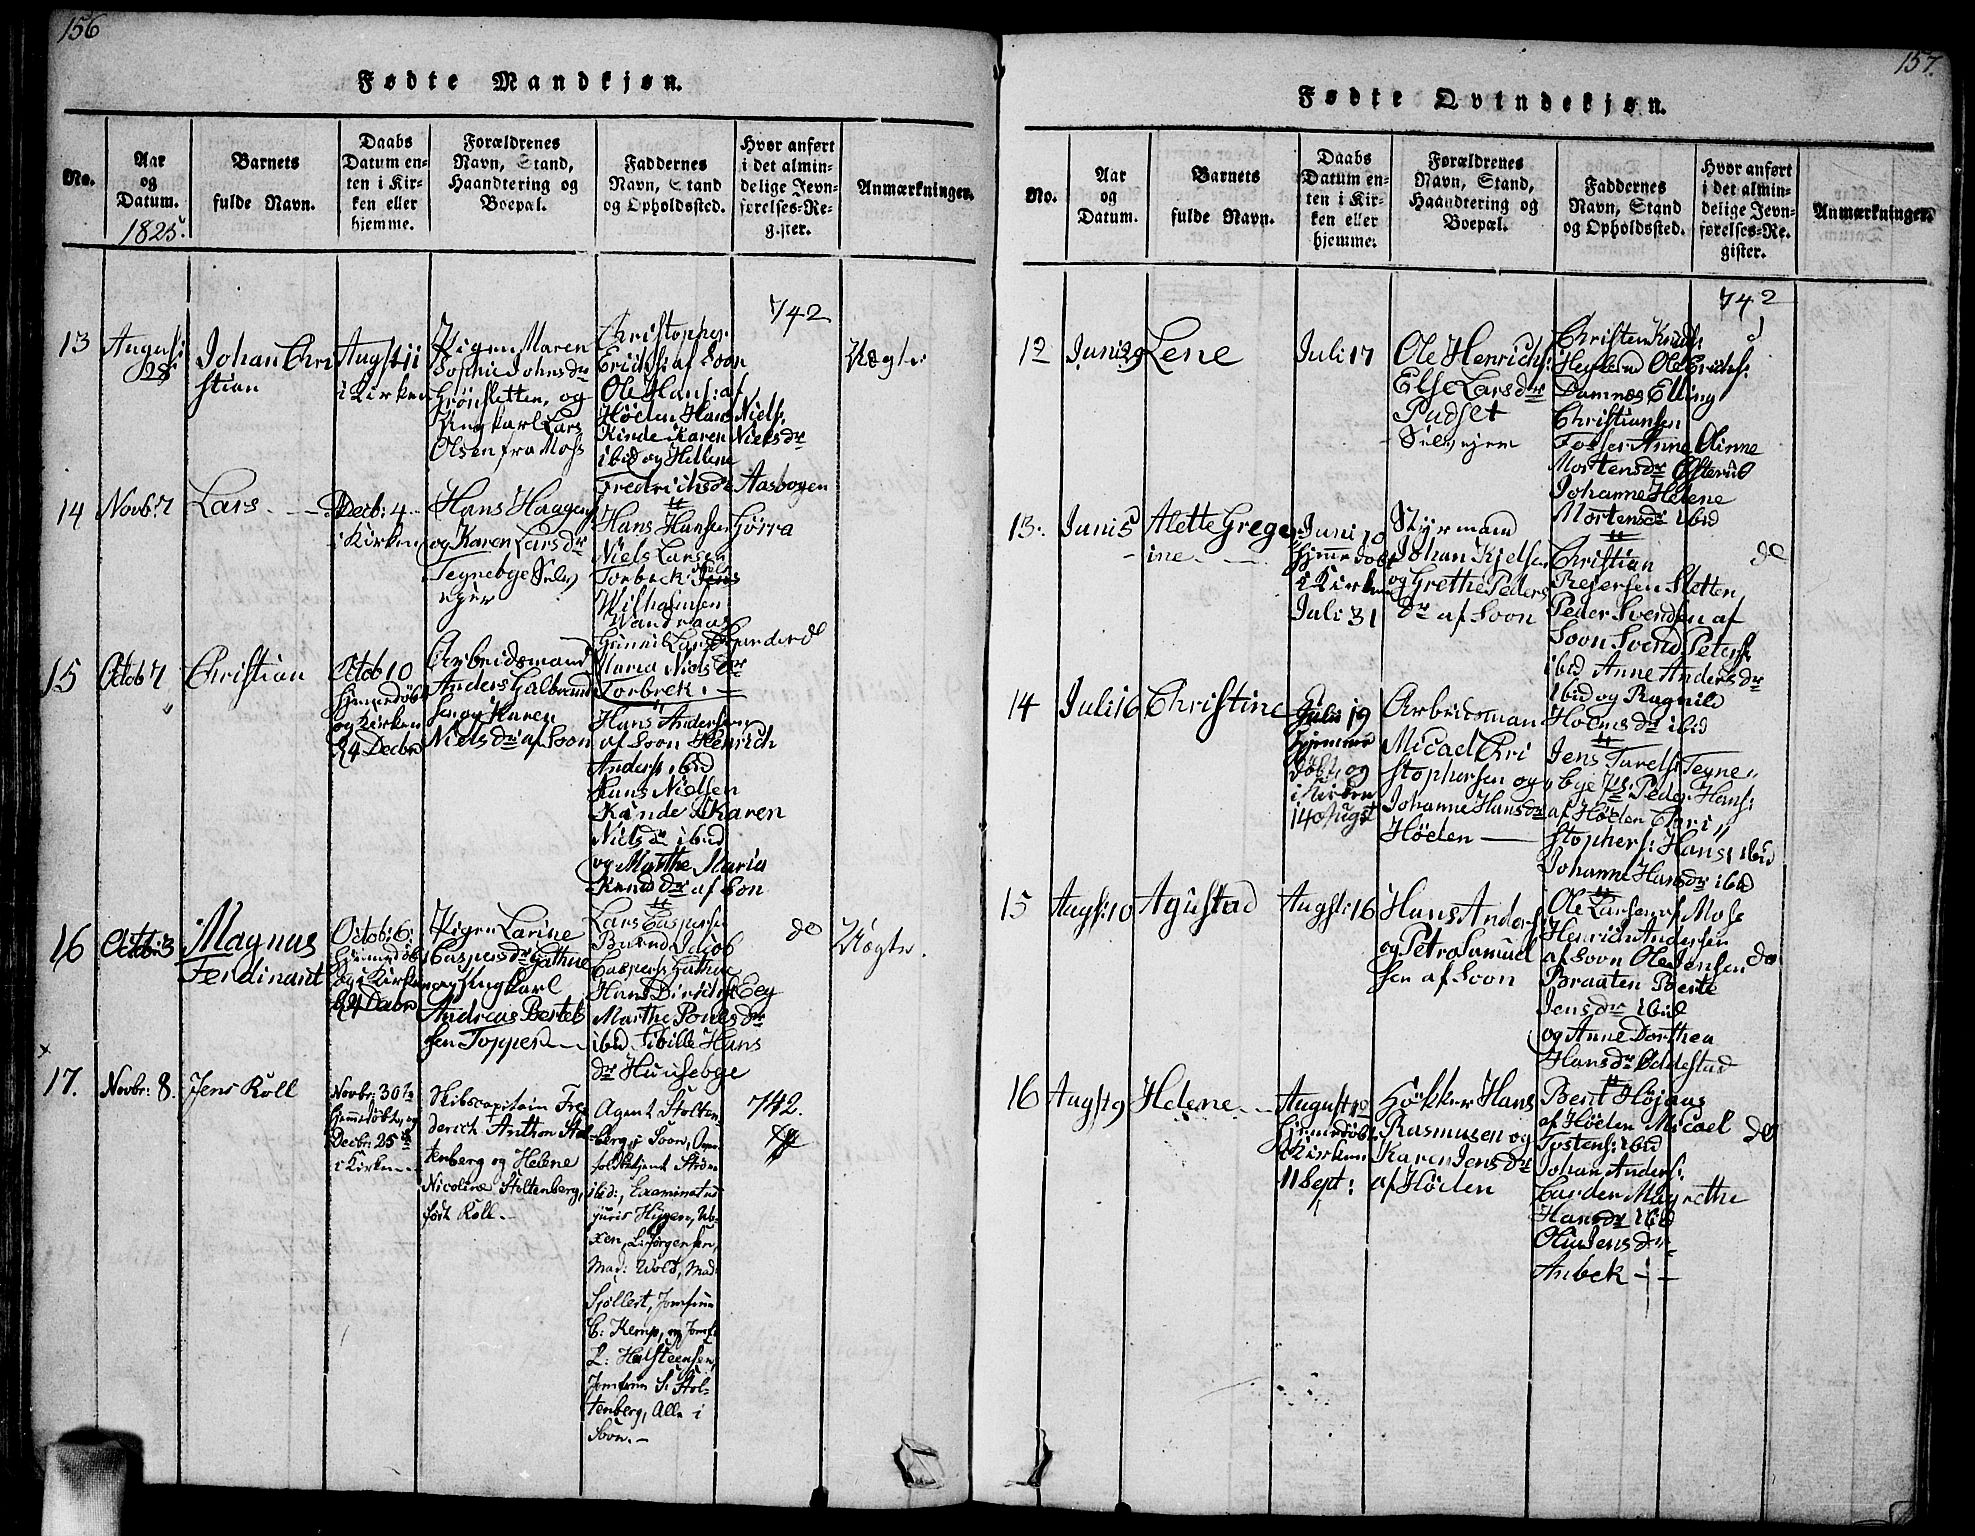 156
Fødte Mandkjøn.
No.
Aar
og
Datum.
1825.
Barnets
fulde Navn.
Daabs
Datum en-
ten i Kir-
ken eller
hjemme.
Forældrenes
Navn, Stand,
Haandtering og
Boepæl.
Faddernes
Navn, Stand
og Opholdssted.
Hvor anført
i det almin-
delige Jevn-
førelses-Re-
gister.
Anmærkninger.
13
August
28
Johan Chri
stian
Augst 11
i Kirken
Pigen Maren
Sophie Johnsdr
Grønsletten, og
Ungkarl Lars
Olsen fra Moss
Christopher
Erichs: af Soon
Ole Hans: af
Høden Hans Niels:
Kinde Karen Nielsdr
ibid og Hellene
Fredrichsdr Aasbogen
742
Uægte
14
Novb: 7
Lars
Decb: 4
i Kirken
Hans Haagens
og Karen Larsdr
Tegnebye Selv
ejer
Hans Hansen Gørra
Niels Larsen
Torbek Jens
Wilhelmsen
Wandraas
Gunnil Larsdr
Maria Nielsdr
Torbek.
15
Octob 7
Christian
Octob 10
hjemmedøbt
og i Kirken
d 4 Decbr
Arbeidsmand
Anders Galbrand
sen og Karen
Nielsdr af Soon
Hans Andersen
af Soon Henrich
Anders: ibid
Hans Nielsen
Kinde Karen
Nielsdr ibid
og Marthe Maria
Knudsdr af Son
16
Octb: 3
Magnus
Ferdinant
Octob: 6
hjemmedøbt
og i Kirken
d 4 Decbr
Pigen Larine
Caspersdr Gathue
og Ungkarl
Andreas Bertel
sen Topper
Lars Caspersen
Brevud Jacob
Caspers: Gathue
Hans Dirichs: Eeg
Marthe Poulsdr
ibid Sibille Hans
dr Huusebye
do
Uægte.
17.
Novbr: 8.
Jens Roll
Novbr: 30te
hjemmedøbt, og
Decbr: 25de
i Kirken
Skibscapitain Fre
derich Anthon Stol
tenberg og Helene
Nicoline Stoltenberg,
født Roll.
Agent Stolten-
berg i Soon,
ibid:, Examinatus
juris Hugen,
xen, L: Jørgensen,
Mad: Wold, Mad:
Sjøllert, Jomfrue
C: Kemp, og Jomf:
L: Halsteensen,
Jomfrue S: Stol-
tenberg, Alle i
Soon.
742.
157.
Fødte Qvindekjøn.
No.
Aar
og
Datum.
Barnets
fulde Navn.
Daabs
Datum en-
ten i Kir-
ken eller
hjemme.
Forældrenes
Navn, Stand,
Haandtering og
Boepæl.
Faddernes
Navn, Stand
og Opholdssted.
Hvor anført
i det almin-
delige Jevn-
førelses-Re-
gister.
Anmærkninger.
12
Juni 29
Lene
Juli 17
Ole Henrichs:
Else Larsdr
Pudset
Selvejern
Christen Knuds:
Heyelund Ole Erichs:
Damnæs Elling
Christiansen
Fosser Anne Olinne
Mortensdr Østerud
Johanne Helene
Mortensdr ibid
742
13.
Juni 5
Alette Grege
ine
Juni 10
hjemmedøbt
i Kirken
Juli 31
Styrmand
Johan Kjelsen
og Grethe Peders
dr af Soon
Christian
Rejersen Sletten
Peder Svendsen af
Soon Svend Peters:
ibid Anne Andersdr
ibid og Ragnild
Holmsdr ibid
do
14
Juli 16
Christine
Juli 19
hjemme
døbt, og
i Kirken
14 August
Arbeidsman
Micael Chri
stophersen og
Johanne Hansdr
Høden
Jens Turels: Tegne
bye Ps: Peder Hans:
af Høden Chri
stophers: Hans: ibid
Johanne Hansdr ibid
15
Augst: 10
Agustad
Augst: 16
Hans Anders:
og Petra Samuel
sen af Soon
Ole Larsen af Mose
Henrich Andersen
af Soon Ole Jensen
Braaten Berte
Jensdr ibid
og Anne Dorthea
Hansdr Oddestad
do
16
Augst 9
Helene
August 12
hjemmedøbt
i Kirken
11 Sept:
Høkker Hans
Rasmusen og
Karen Jensdr
af Høden
Bent Højaas
af Høden Micael
Tostens: ibid
Johan Anders:
Garder Magrethe
Hansdr ibid
Olia Jensdr
Anbek
do